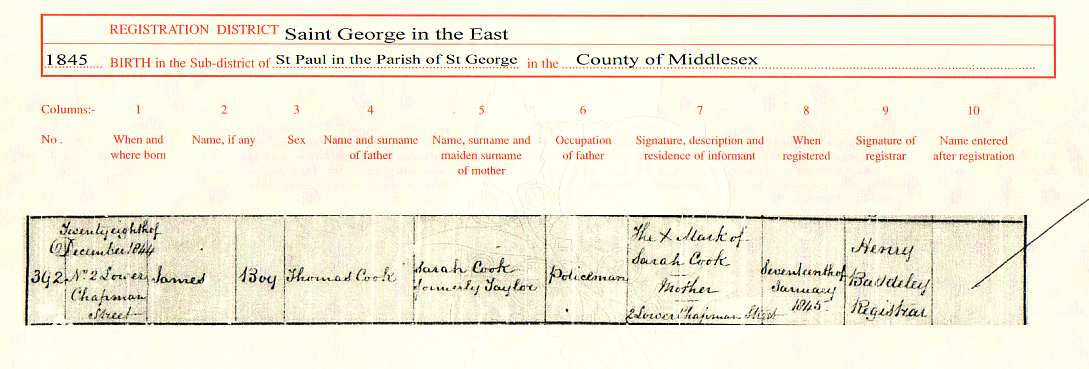 REGISTRATION DISTRICT Saint George in the East
1845 BIRTH in the Sub-district of St Paul in the Parish of St George in the County of Middlesex
Columns:- 1 2 3 4 5 6 7 8 9 10
No. When and where born Name, if any Sex Name and surname of father Name, surname and maiden surname of mother Occupation of father Signature, description and residence of informant When registered Signature of registrar Name entered after registration
392
Twenty eighth of
December 1844
No 2 Lower
Chapman
Street
James
Boy
Thomas Cook
Sarah Cook
formerly Taylor
Policeman
The X Mark of
Sarah Cook
Mother
2 Lower Chapman Street
Seventeenth of
January
1845
Henry
Baddeley
Registrar